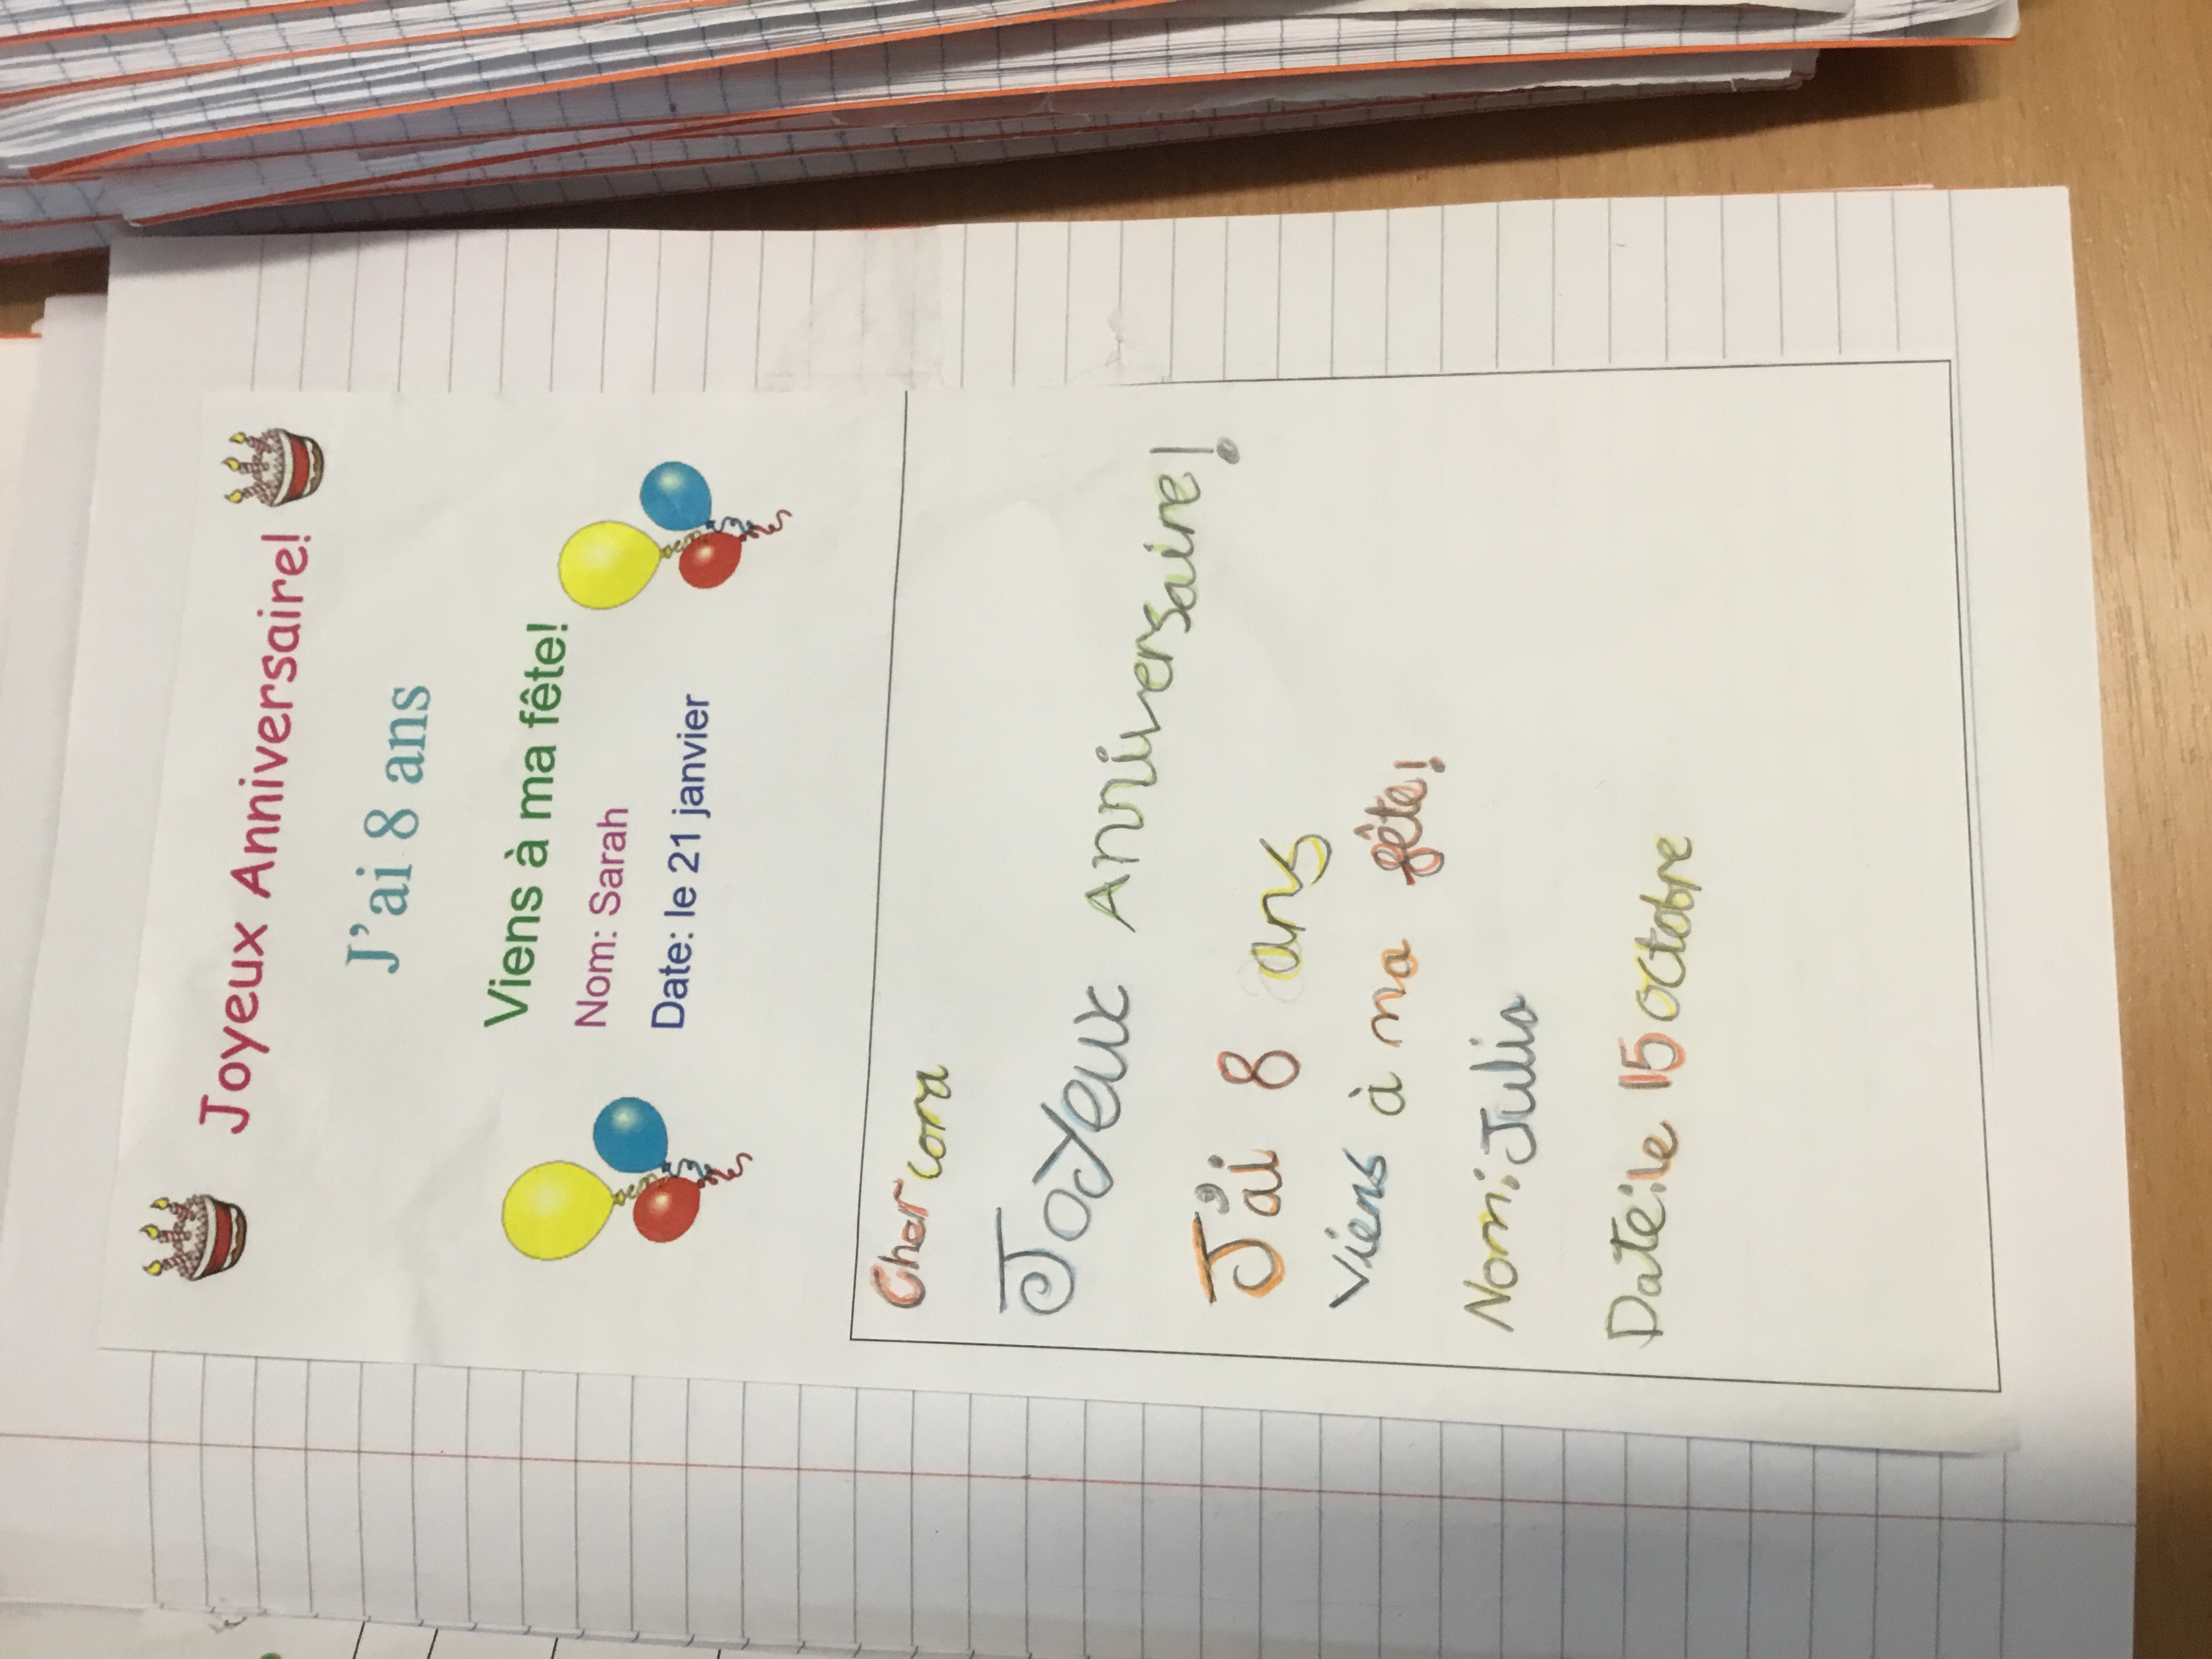 Joyeux Anniversaire!
J'ai 8 ans
Viens à ma fête!
Nom: Sarah
Date: le 21 janvier
Cher cora
Joyeux Anniversaire!
J'ai 8 ans
Viens à ma fête!
Nom: Julia
Date: le 15 octobre